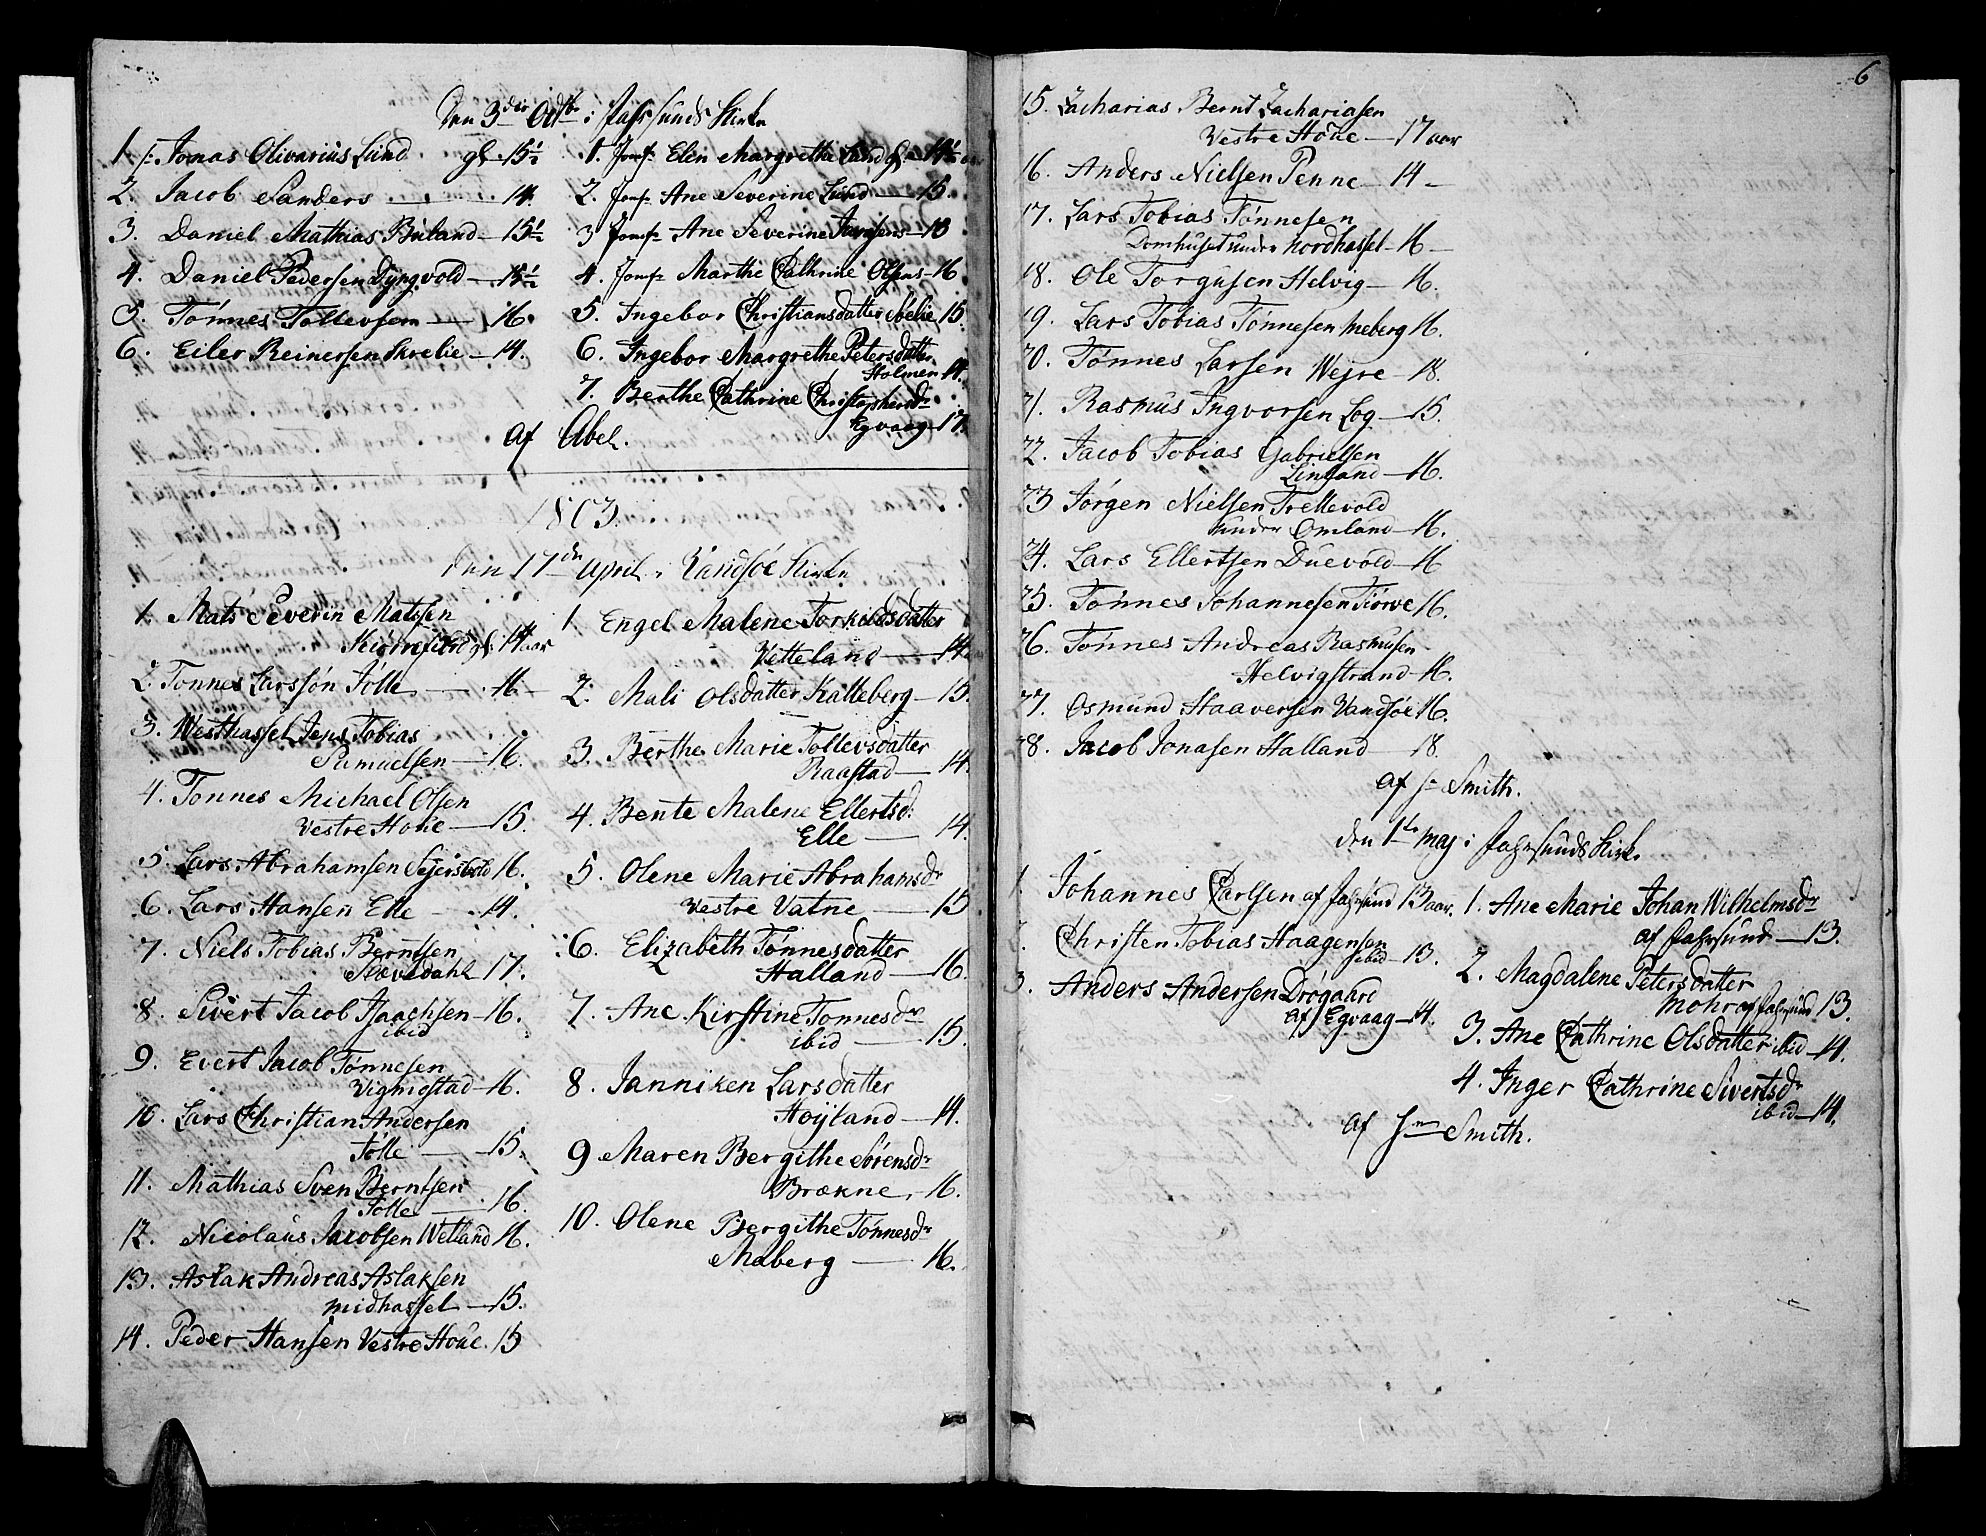 Den 3die Octbr i Fahrsunds Kirke
1. Jomas Olivarius Lund gl. 15½
2. Jacob Sanders 14.
3. Daniel Mathias Buland 15½
4. Daniel Pedersen Dyngvold 15½
5. Tönnes Tollevsen 16.
6. Eiler Reinersen Skrelie 14.
1. Jomf. Elen Margrethe Lund gl. 14½ aar
2. Jomf. Ane Severine Lund 15.
3 Jomf. Ane Severine Jansens 18
4. Jomf. Marthe Cathrine Olsens 16
5. Ingebor Christiansdatter Melie 15.
6. Ingebor Margrethe Petersdatter
Holmen 14.
7. Berthe Cathrine Christophersdr
Egvaag 17.
af Abel.
1803.
den 17de April i Vandsöe Kirke
1. Mats Severin Matssen
Kiörrefiord gl. 14 aar
2. Tonnes Larssön Jölle 16
3. Westhassel Jens Tobias
Samuelsen 16.
4. Tonnes Michael Olsen
Vestre Houe 15.
5. Lars Abrahamsen Sejersvold 16.
6. Lars Hansen Elle 14.
7. Niels Tobias Berntsen
Skevedahl 17.
8. Sivert Jacob Isaachsen 16.
ibid
9. Evert Jacob Tönnesen
Vigmostad 16.
10. Lars Christian Andersen
Jölle 15.
11. Mathias Sven Berntsen
Jölle 16.
12. Nicolaus Jacobsen Wetland 16.
13. Aslak Andreas Aslaksen
midhassel 15.
14. Peder Hansen Vestre Houe. 15
1 Engel Malene Torkildsdatter
Vetteland 14.
2. Mali Olsdatter Kalleberg 15.
3. Berthe Marie Tollevsdatter
Raastad 14.
4. Bente Malene Ellertsd:
Elle 14.
5. Olene Marie Abrahamsdr
Vestre Vatne 15
6. Elizabeth Tönnesdatter
Halland 16.
7. Ane Kirstine Tonnesdr
ibid 15.
8. Janniken Larsdatter
Hoÿland 14.
9 Maren Bergithe Sörensdr
Brækne 16.
10. Olene Bergithe Tönnesdr
Meberg 16.
6
15. Zacharias Bernt Zachariasen
Vestre Houe 17 aar
16. Anders Nielsen Penne 14
17. Lars Tobias Tönnesen
Domhuset under Nordhassel 16
18. Ole Torgusen Helvig 16.
19. Lars Tobias Tönnesen Meberg 16.
20. Tönnes Larsen Wejre 18.
21. Rasmus Ingvorsen Log 15.
22. Jacob Tobias Gabrielsen
Linland 16.
23 Jörgen Nielsen Trellevold
under Omland 16.
24. Lars Ellertsen Duevold 16
25. Tönnes Johannesen Tiörve 16.
26. Tönnes Andreas Rasmusen
Helvigstrand 16.
27. Osmund Haaversen Vandsöe 16.
28. Jacob Jonasen Halland 18.
af Hr Smith.
den 1te Maj i Fahrsunds Kirke
1. Johannes Carlsen af Fahrsund 13 aar.
Christen Tobias Haagensen
ibid 13.
3. Anders Andersen Drögaard
af Egvaag 14.
1. Ane Marie Johan Wilhelmsdr
af Fahrsund 13.
2. Magdalene Petersdatter
Mohr af Fahrsund 13.
3. Ane Cathrine Olsdatter ibid 14.
4. Inger Cathrine Sivertsdr
ibid 14.
af Hrn Smith.